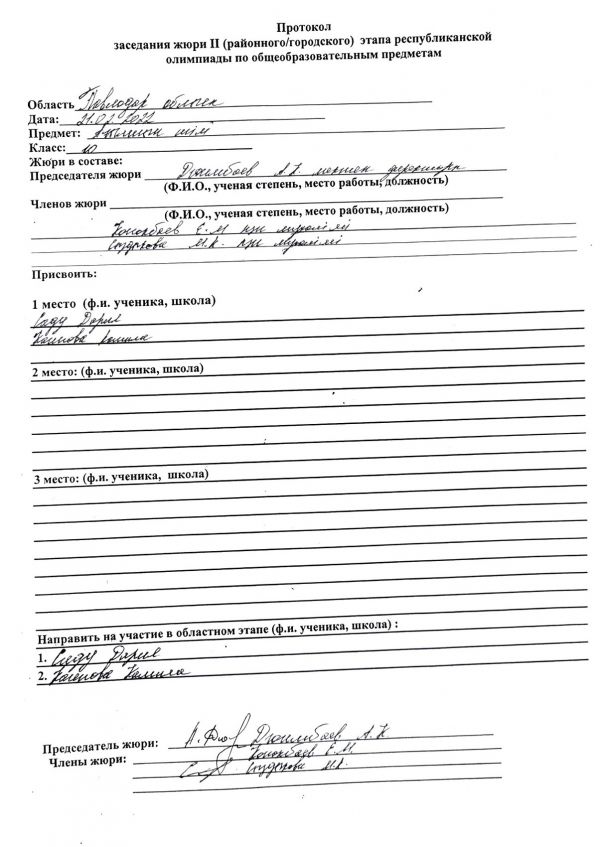 Протокол
заседания жюри II (районного/городского) этапа республиканской
олимпиады по общеобразовательным предметам
Область Павлодар облысы
Дата: 21.01.2022
Предмет: тілі
Класс: 10
Жюри в составе:
Председателя жюри Джилибаев А.К. мектеп директоры
(Ф.И.О., ученая степень, место работы, должность)
Членов жюри
(Ф.И.О., ученая степень, место работы, должность)
Е.М мұғалімі
М.К. мұғалімі
Присвоить:
1 место (ф.и. ученика, школа)
Саду Дария
Камила
2 место: (ф.и. ученика, школа)
3 место: (ф.и. ученика, школа)
Направить на участие в областном этапе (ф.и. ученика, школа) :
1. Саду Дария
2. Камила
Председатель жюри: Джилибаев А.К
Члены жюри: Е.М.
М.К.